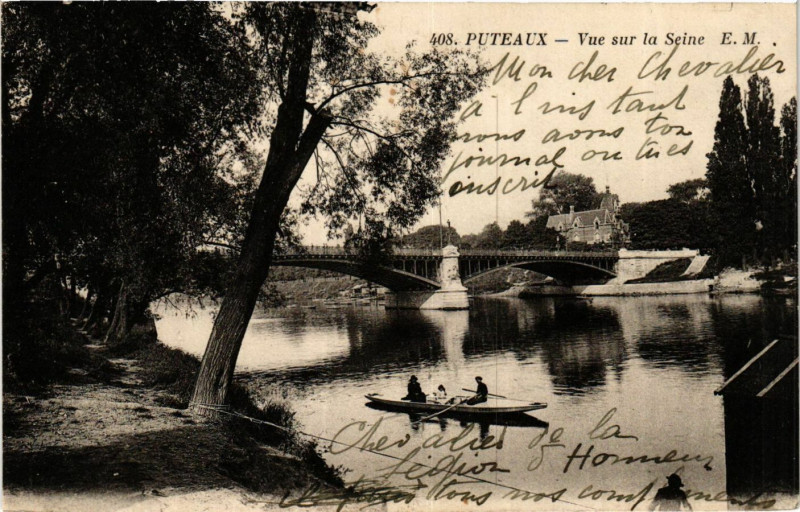 408. PUTEAUX – Vue sur la Seine E. M.
Mon cher Chevalier
a l'instant
nous avons ton
journal ou tu es
inscrit
Chevalier de la
Légion d'Honneur
tous nos compliments